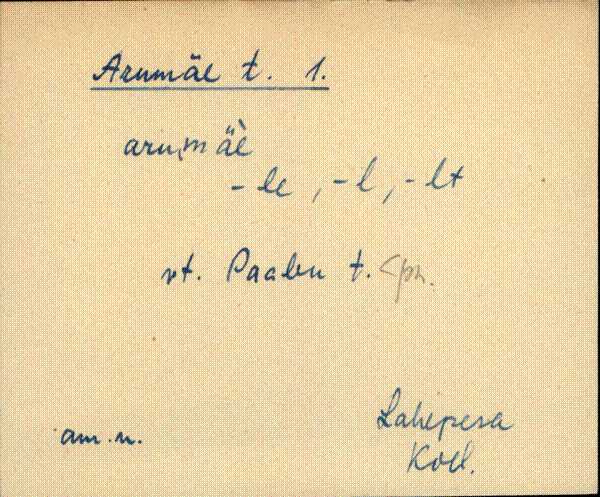 Arumäe t. 1.
aru,m äè
-le, -l, -lt
vt. Paabu t. <pn.
am. n.
Lahepera
Kod.